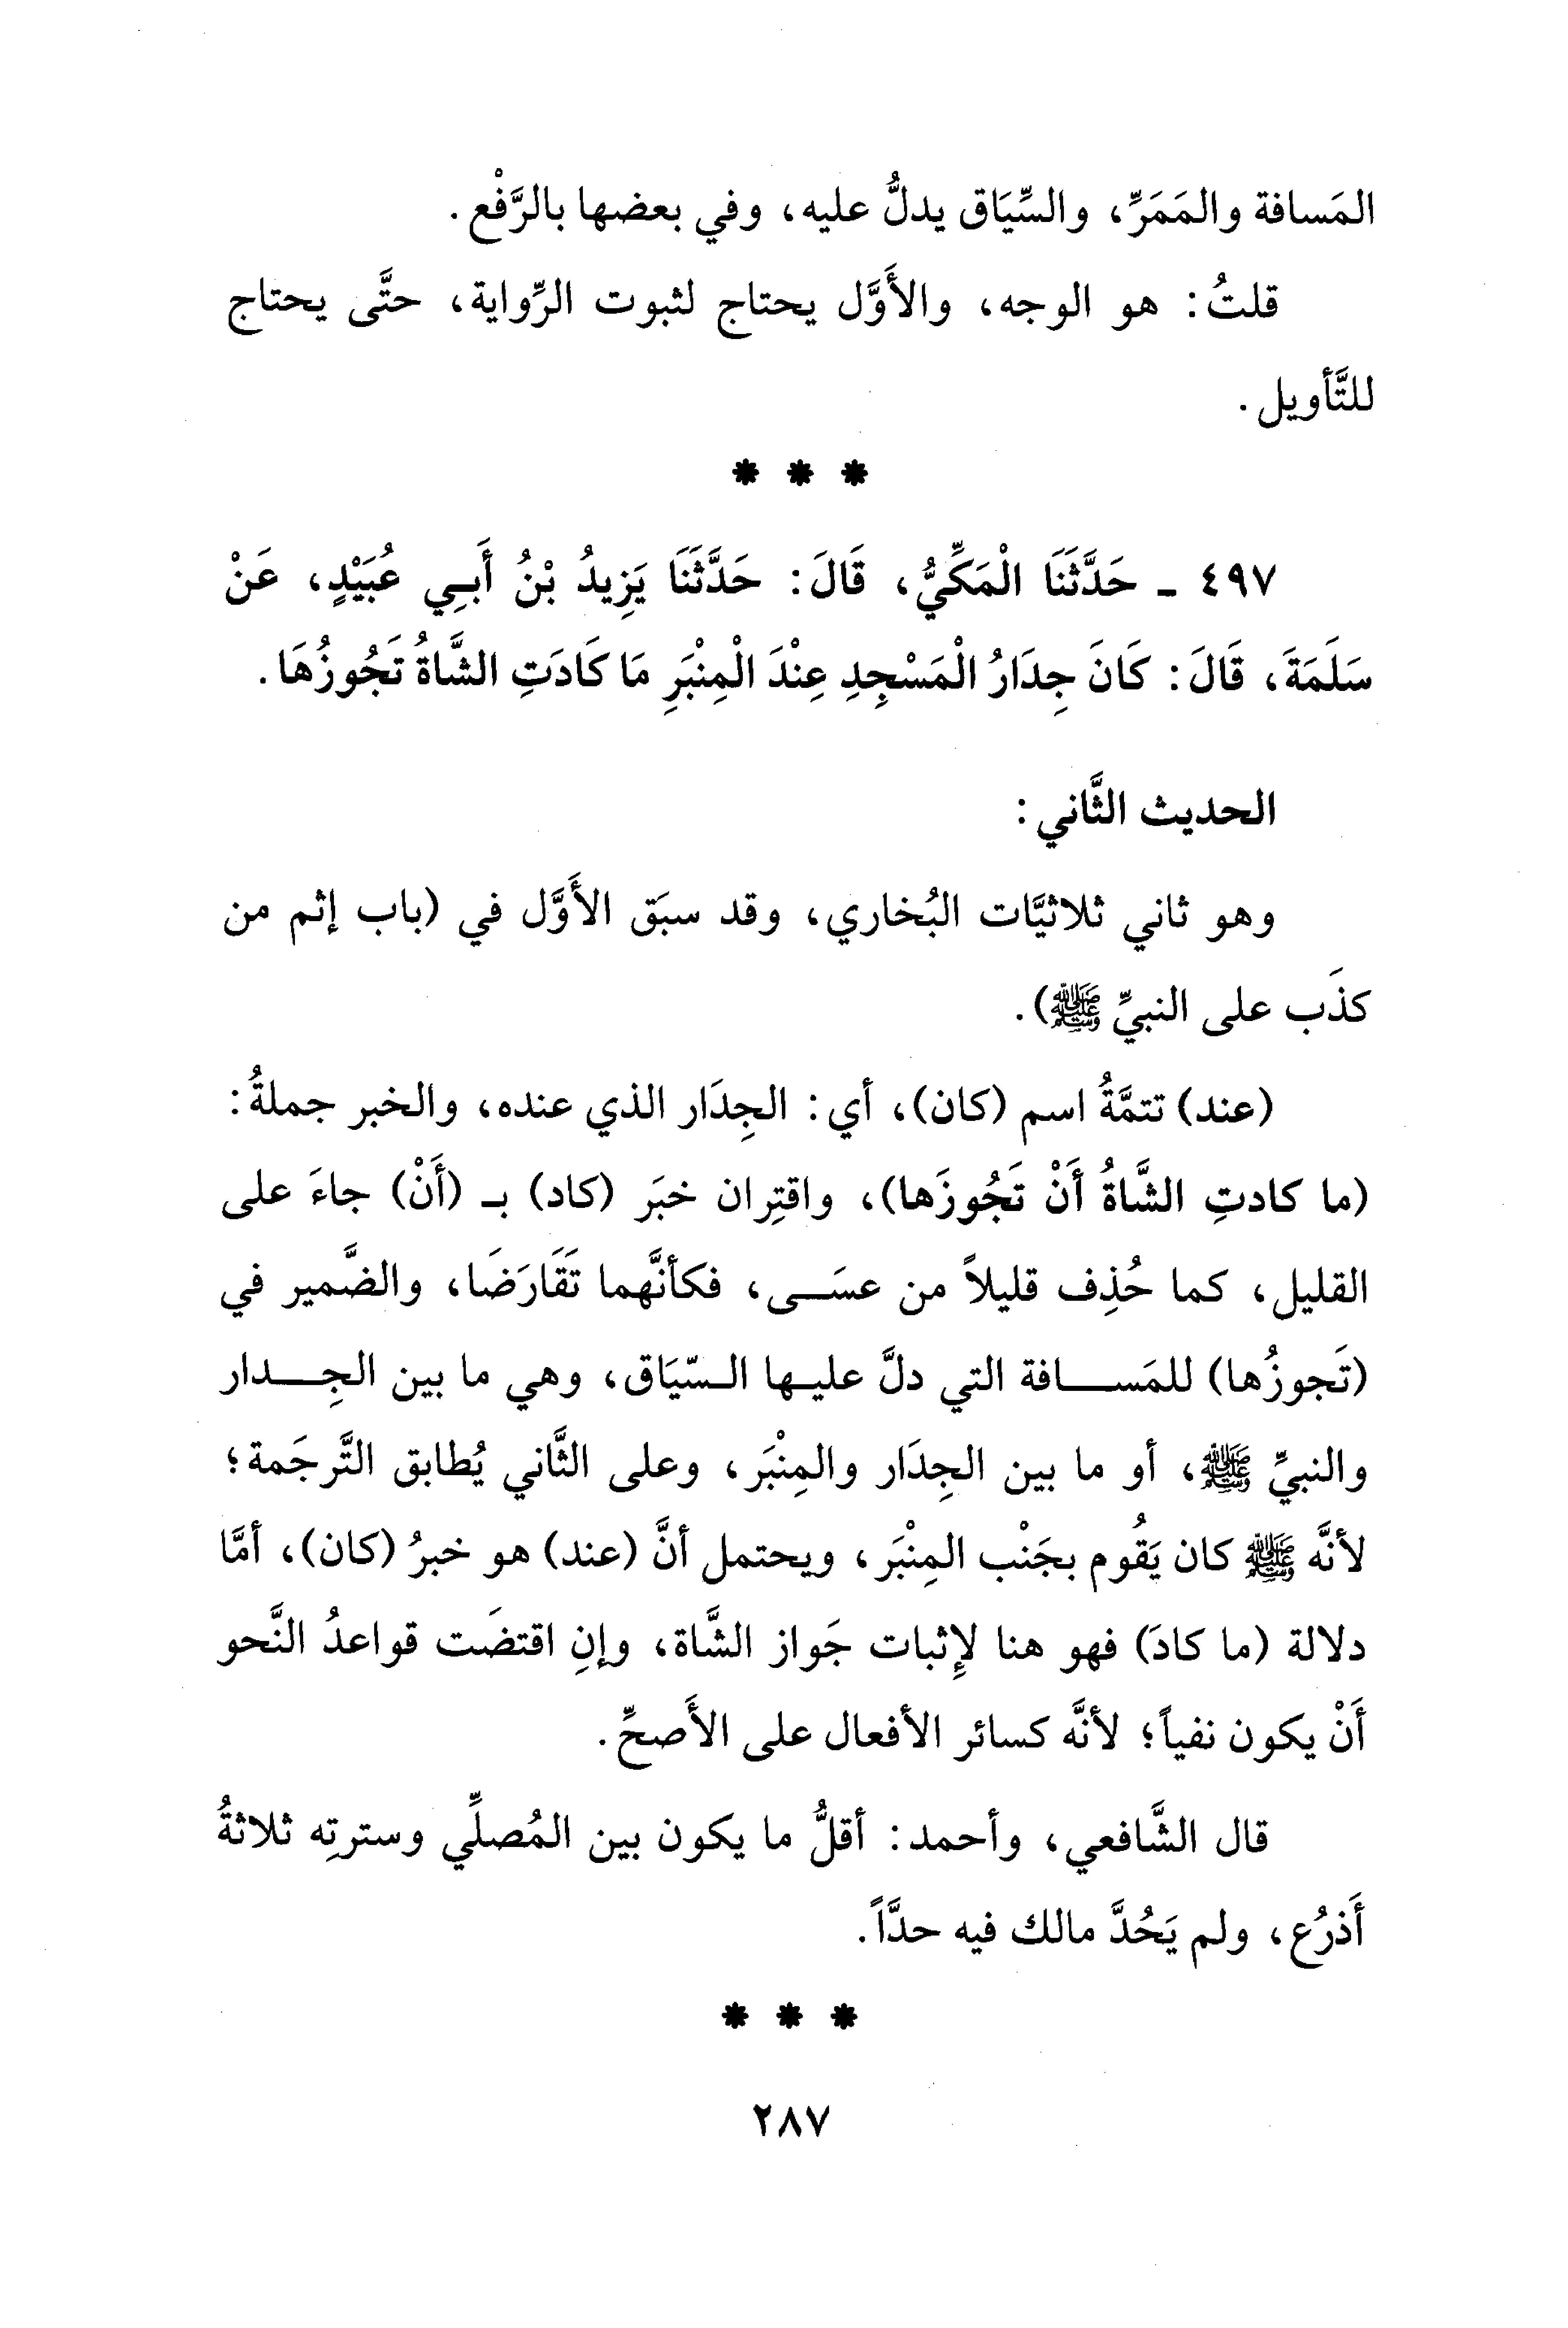 المَسافة والمَمَرِّ، والسِّيَاق يدلُّ عليه، وفي بعضها بالرَّفْع.
قلتُ: هو الوجه، والأَوَّل يحتاج لثبوت الرِّواية، حتَّى يحتاج
للتَّأويل.
* * *
٤٩٧ - حَدَّثَنَا الْمَكِّيُّ، قَالَ: حَدَّثَنَا يَزِيدُ بْنُ أَبِي عُبَيْدٍ، عَنْ
سَلَمَةَ، قَالَ: كَانَ جِدَارُ الْمَسْجِدِ عِنْدَ الْمِنْبَرِ مَا كَادَتِ الشَّاةُ تَجُوزُهَا.
الحديث الثَّاني:
وهو ثاني ثلاثيَّات البُخاري، وقد سبَق الأَوَّل في (باب إثم من
كذَب على النبيِّ ﷺ).
(عند) تتمَّةُ اسم (كان)، أي: الجِدَار الذي عنده، والخبر جملةُ:
(ما كادتِ الشَّاةُ أَنْ تَجُوزَها)، واقتِران خبَر (كاد) بـ (أَنْ) جاءَ على
القليل، كما حُذِف قليلاً من عسَـى، فكأنَّهما تَقَارَضَا، والضَّمير في
(تَجوزُها) للمَسـافة التي دلَّ عليها السّيَاق، وهي ما بين الجِـدار
والنبيِّ ﷺ، أو ما بين الجِدَار والمِنْبَر، وعلى الثَّاني يُطابق التَّرجَمة؛
لأنَّه ﷺ كان يَقُوم بجَنْب المِنْبَر، ويحتمل أنَّ (عند) هو خبرُ (كان)، أمَّا
دلالة (ما كادَ) فهو هنا لإِثبات جَواز الشَّاة، وإنِ اقتضَت قواعدُ النَّحو
أَنْ يكون نفياً؛ لأنَّه كسائر الأفعال على الأَصحِّ.
قال الشَّافعي، وأحمد: أقلُّ ما يكون بين المُصلِّي وسترتِه ثلاثةُ
أَذرُع، ولم يَحُدَّ مالك فيه حدَّاً.
* * *
٢٨٧